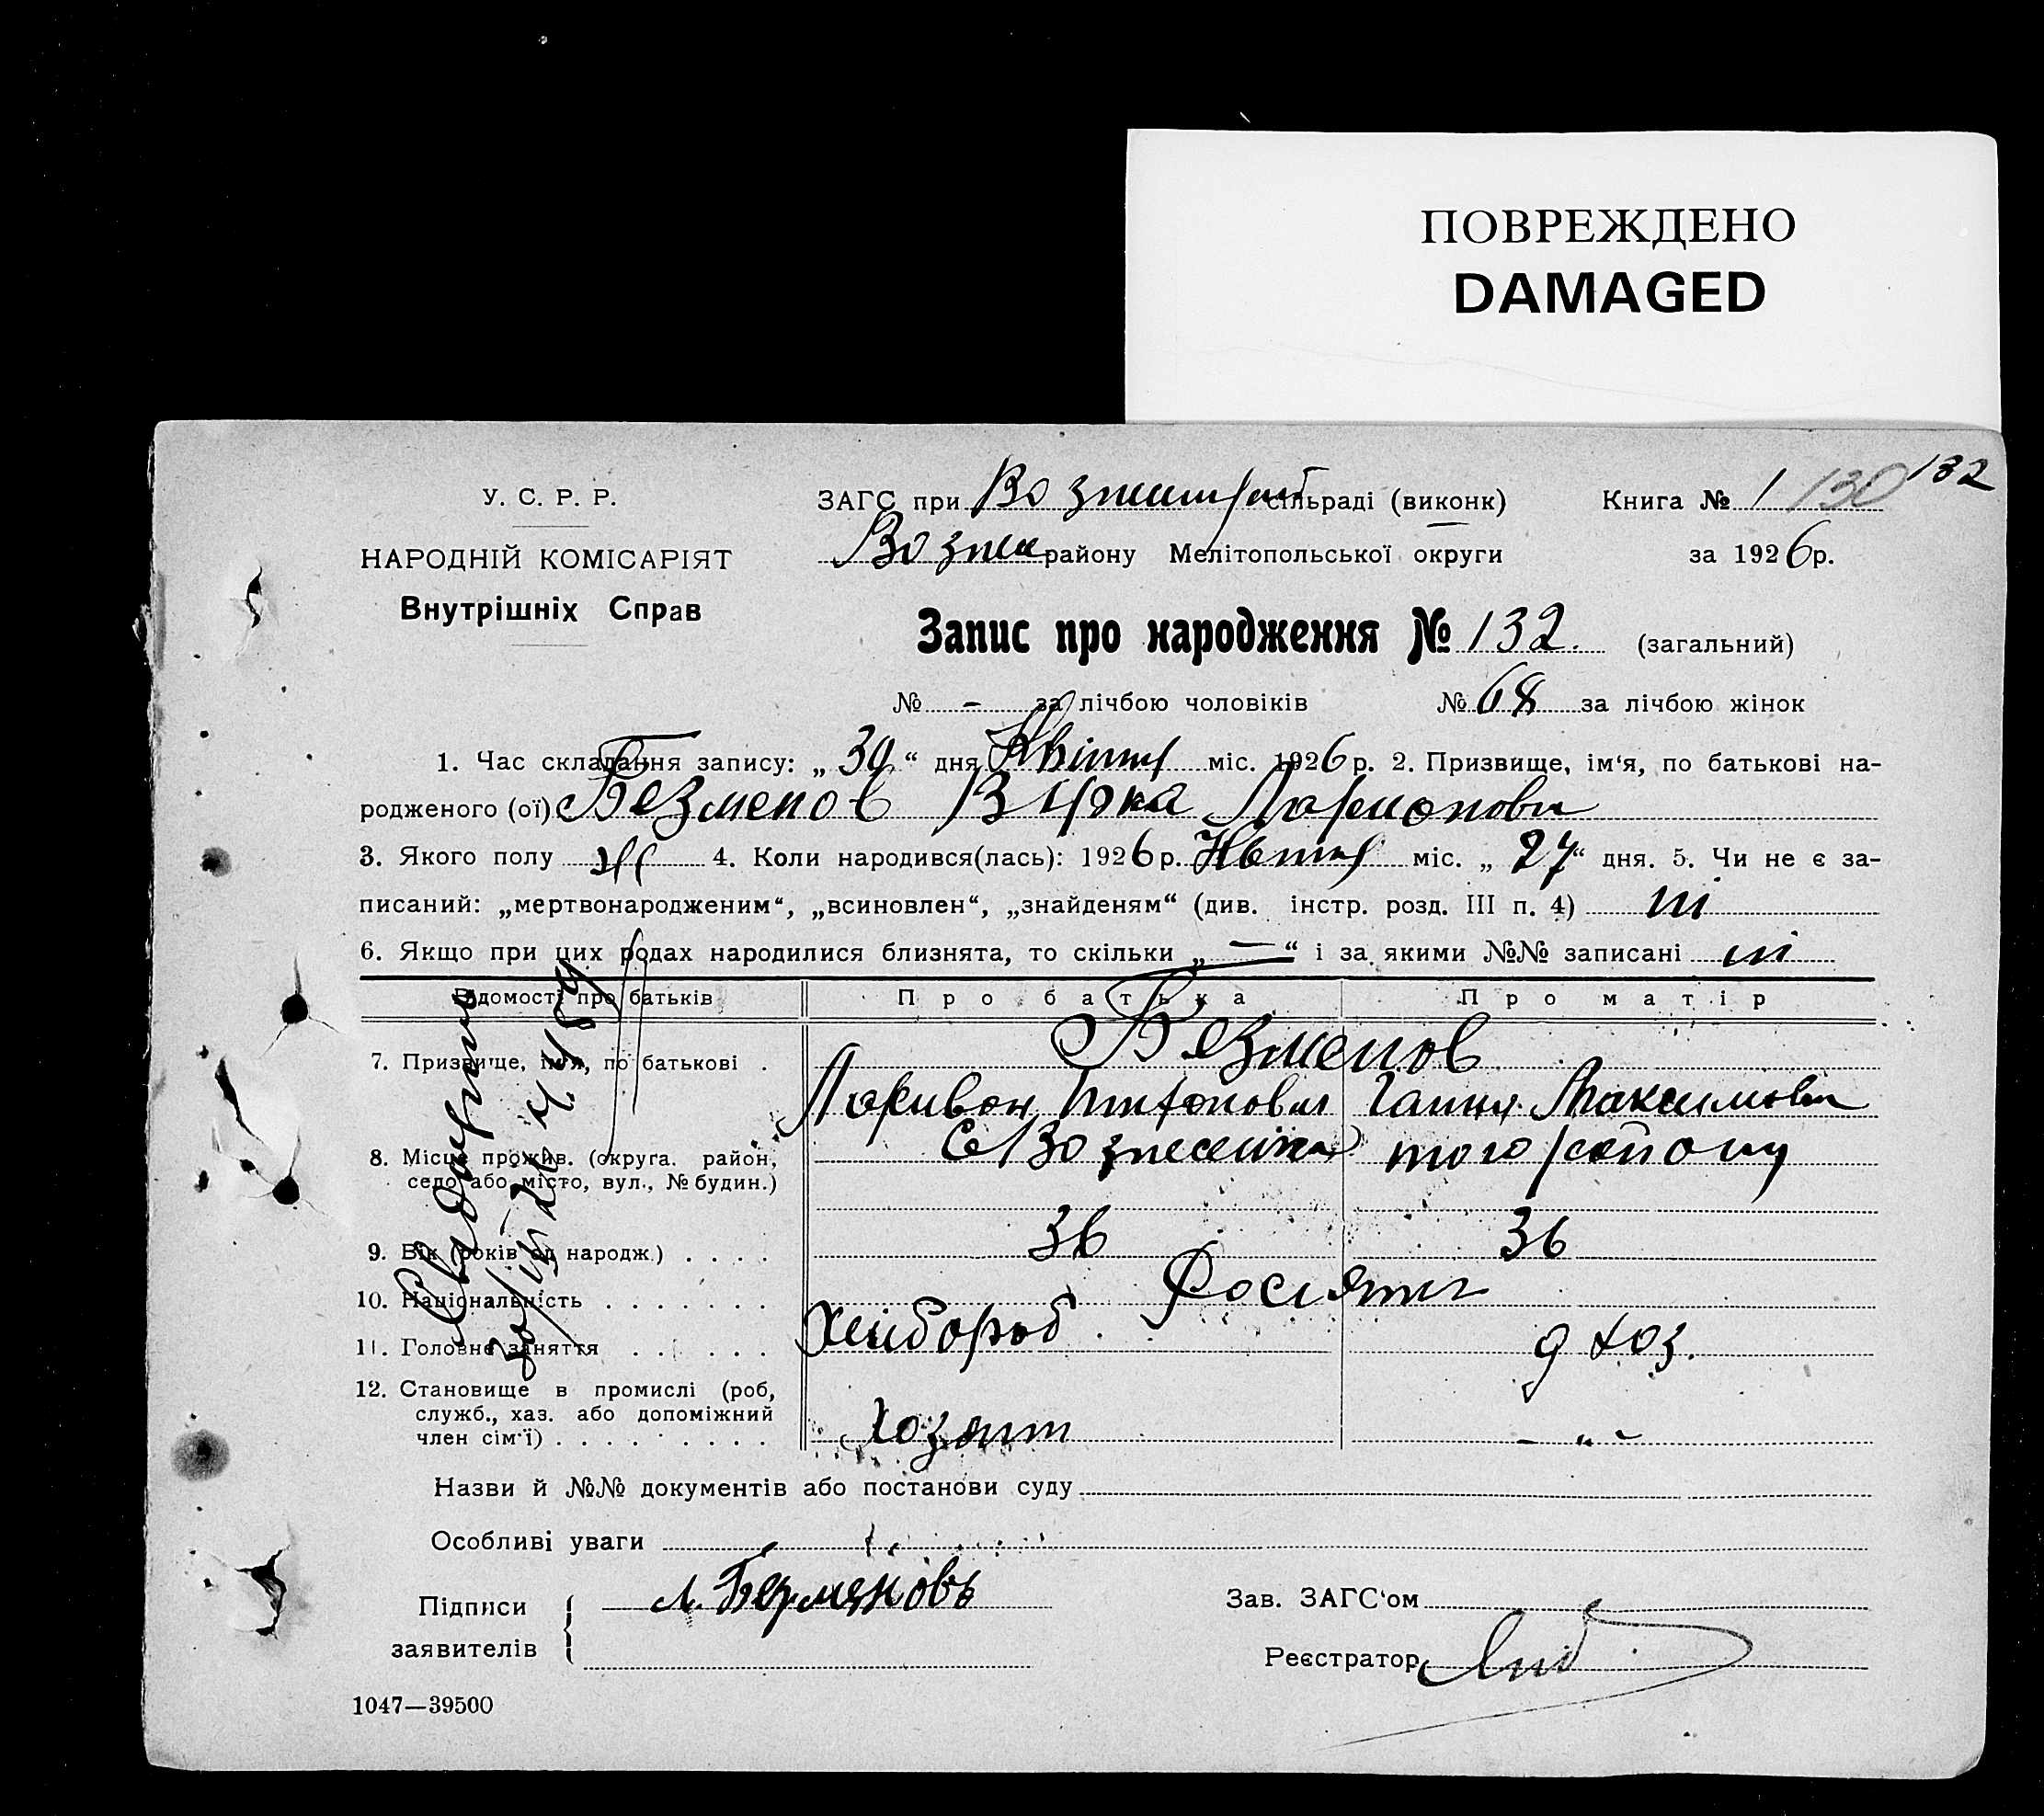 ПОВРЕЖДЕНО
DAMAGED
У. С. Р. Р.
НАРОДНІЙ КОМІСАРІЯТ
Внутрішніх Справ
ЗАГС при сільраді (виконк)
Книга № 1 130 132
Вознес району Мелітопольської округи
за 1926 р.
Запис про народження № 132. (загальний)
№ - за лічбою чоловіків № 68 за лічбою жінок
1. Час складання запису: „ 30 “ дня Квітня міс. 1926 р. 2. Призвище, ім‘я, по батькові на-
родженого (ої) Безменов Ларионовн
3. Якого полу ж 4. Коли народився(лась): 1926 р. Квітня міс. „ 27 “ дня. 5. Чи не є за-
писаний: „мертвонародженим“, „всиновлен“, „знайденям“ (див. інстр. розд. III п. 4) ні
6. Якщо при цих родах народилися близнята, то скільки „ — “ і за якими №№ записані ні
Відомості про батьків
Про батька
Про матір
7. Призвище, ім‘я, по батькові .
Безменов
Ларивон Ганна Максимовн
8. Місце прожив. (округа. район,
село або місто, вул., № будин.)
С Вознесенка того району
9. Вік (років од народж.) . . . .
36 36
10. Національність . . . . . . .
Росіяни
11. Головне заняття . . . . . .
Хлібороб. д хоз.
12. Становище в промислі (роб,
служб., хаз. або допоміжний
член сім‘ї) . . . . . . . . .
Хозяин - „ -
Назви й №№ документів або постанови суду
Особливі уваги
Підписи
заявителів
Л. Безменовъ
Зав. ЗАГС‘ом
Реєстратор
1047—39500